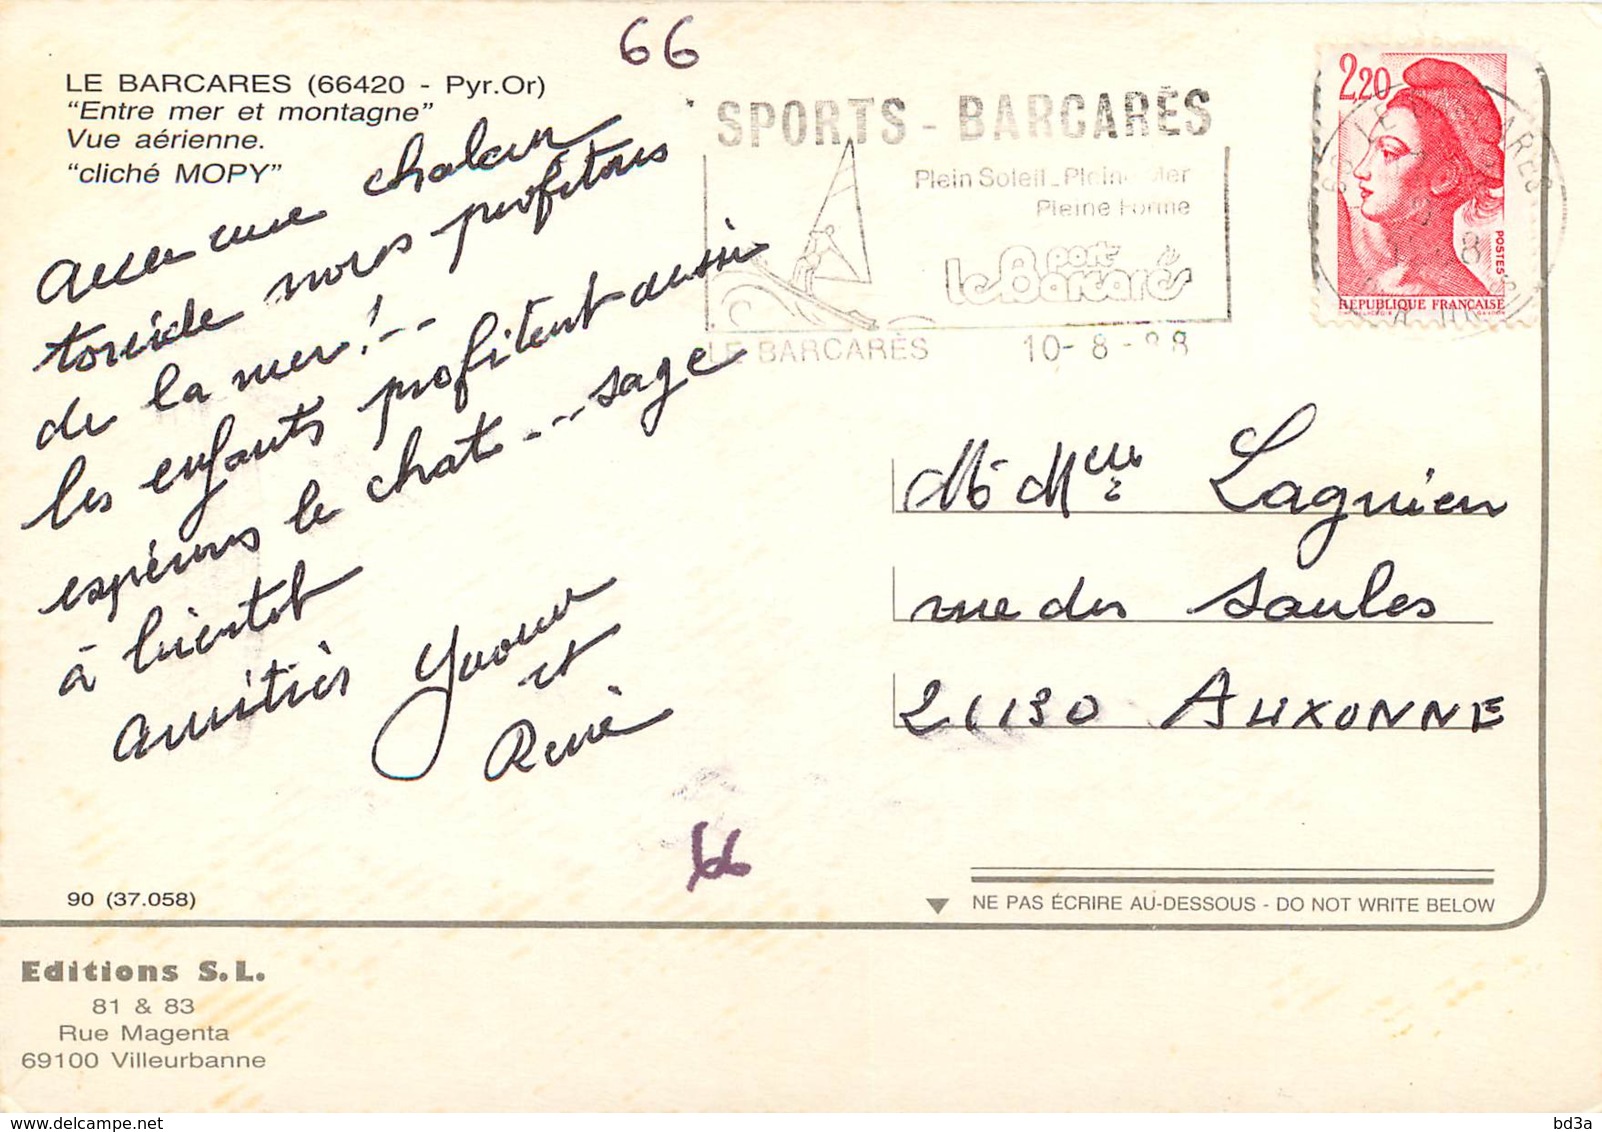 66
LE BARCARES (66420 - Pyr.Or)
"Entre mer et montagne"
Vue aérienne.
"cliché MOPY"
avec une chaleur
torride nous profitons
de la mer!--
les enfants profitent aussi
espérons le chat---sage
à bientot
amitiés Yvonne
et
René
SPORTS - BARCARÈS
Plein Soleil - Pleine Mer
Pleine Forme
port
le Barcarès
LE BARCARÈS 10-8-88
2,20
POSTES
REPUBLIQUE FRANÇAISE
Mr Mme Lagnien
rue des Saules
21130 AUXONNE
66
90 (37.058)
NE PAS ÉCRIRE AU-DESSOUS - DO NOT WRITE BELOW
Editions S.L.
81 & 83
Rue Magenta
69100 Villeurbanne
bd3a